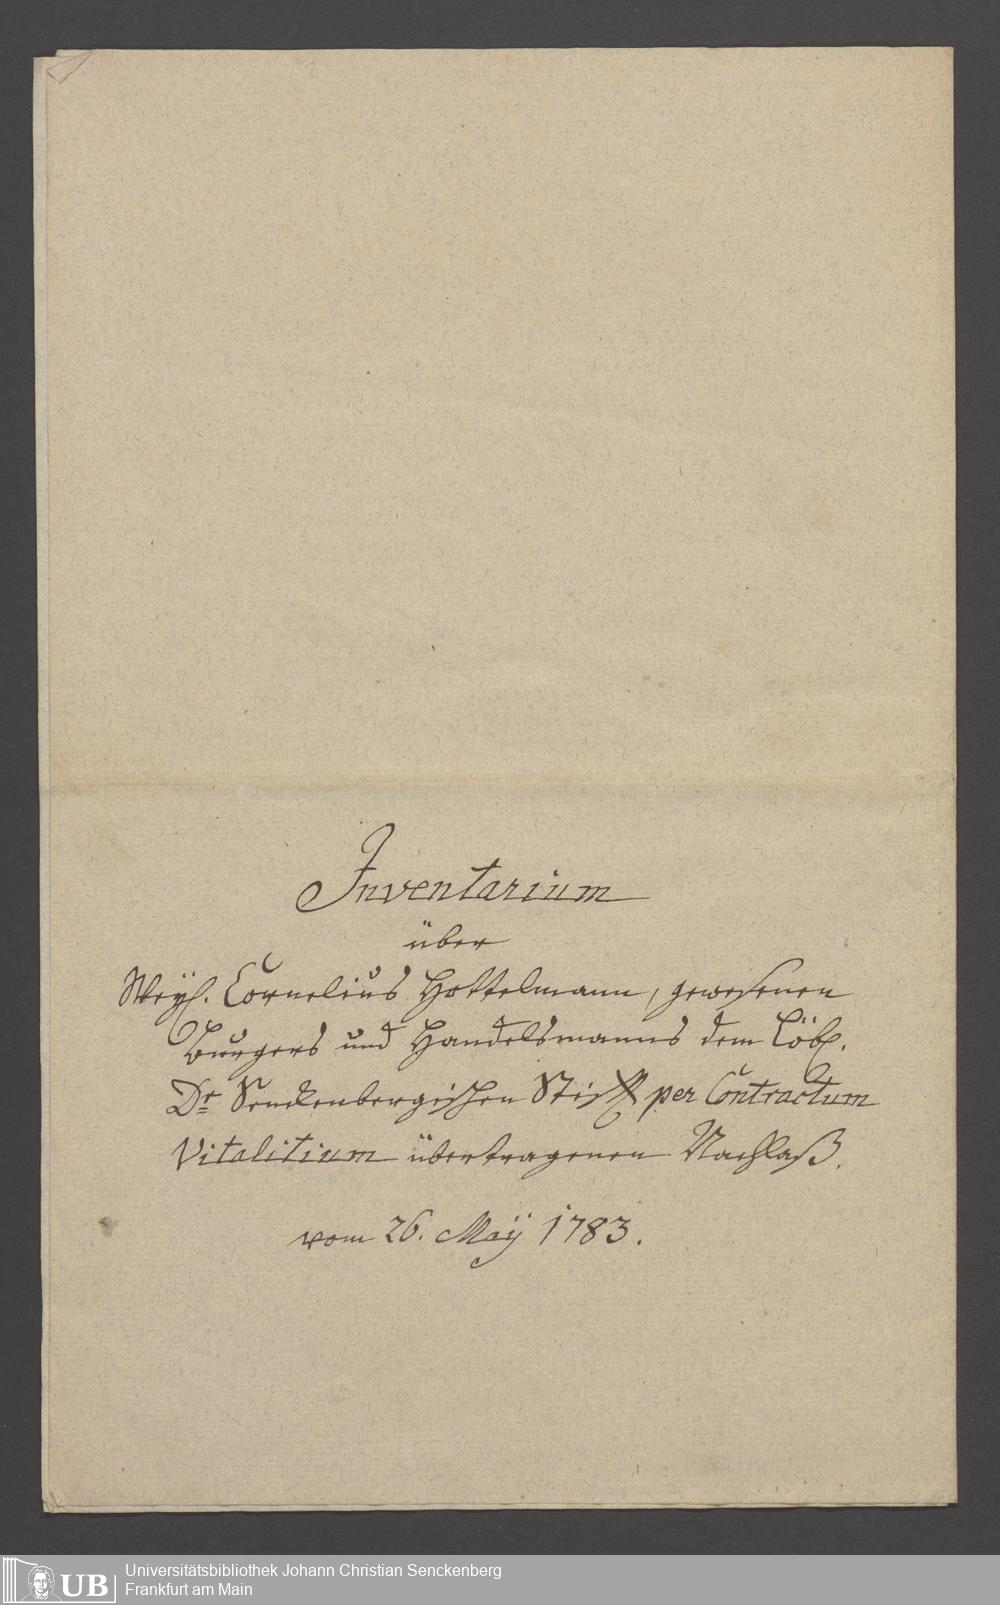 Inventarium
über
Weyl. Cornelius Hottelmann, gewesenen
Burgers und Handelsmanns dem Löbl.
Dr Senckenbergischen Stifft per Contractum
Vitalitium übertragenen Nachlaß.
vom 26. Maÿ 1783.
Universitätsbibliothek Johann Christian Senckenberg
Frankfurt am Main
UB